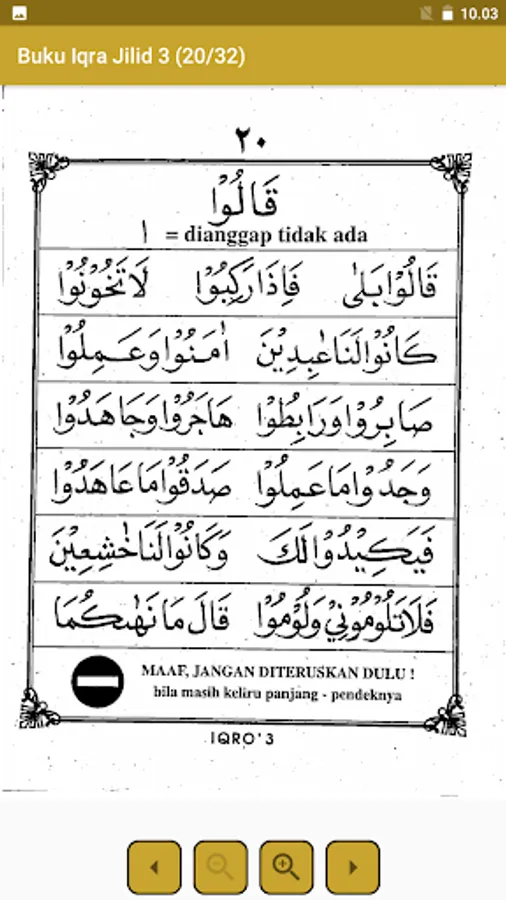 10.03
Buku Iqra Jilid 3 (20/32)
٢٠
قَالُوْا
ا = dianggap tidak ada
قَالُوْا بَلٰى فَاِذَا رَكِبُوْا لَا تَخُوْنُوْا
كَانُوْا لَنَا عٰبِدِيْنَ اٰمَنُوْا وَعَمِلُوْا
صَابِرُوْا وَرَابِطُوْا هَاجَرُوْا وَجَاهَدُوْا
وَجَدُوْا مَا عَمِلُوْا صَدَقُوْا مَا عَاهَدُوْا
فَيَكِيْدُوْا لَكَ وَكَانُوْا لَنَا خٰشِعِيْنَ
فَلَا تَلُوْمُوْنِيْ وَلُوْمُوْا قَالَ مَا نَهٰىكُمَا
MAAF, JANGAN DITERUSKAN DULU !
bila masih keliru panjang - pendeknya
IQRO' 3